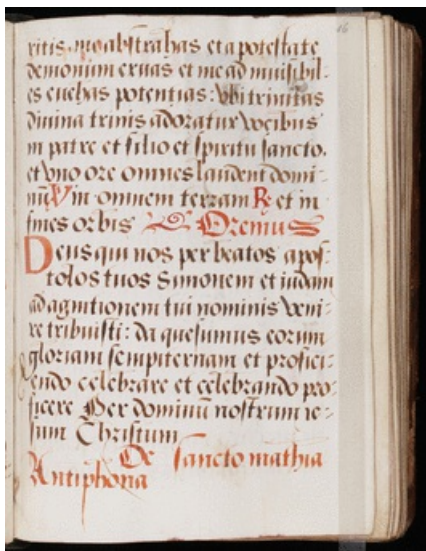 16
ritis, quo abstrahas et a potestate
demonum eruas et me ad inuisibil-
es euehas potentias: Vbi trinitas
diuina trinis adoratur vocibus
in patre et filio et spiritu sancto.
et vno ore omnes laudent domi-
nū V in omnem terram R et in
fines orbis Oremus
Deus qui nos per beatos apos-
tolos tuos Simonem et iudam
ad agnitionem tui nominis veni-
re tribuisti: da quesumus eorum
gloriam sempiternam et profici-
endo celebrare et celebrando pro-
ficere Per dominū nostrum ie-
sum Christum
De sancto mathia
Antiphona